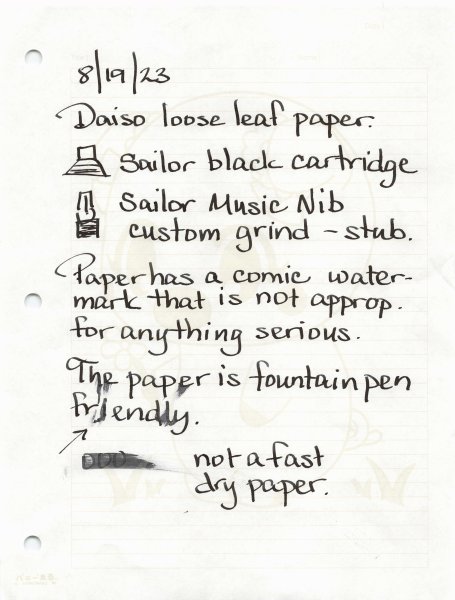 8/19/23
Daiso loose leaf paper.
Sailor black cartridge
Sailor Music Nib
custom grind - stub.
Paper has a comic water-
mark that is not approp.
for anything serious.
The paper is fountain pen
friendly.
not a fast
dry paper.